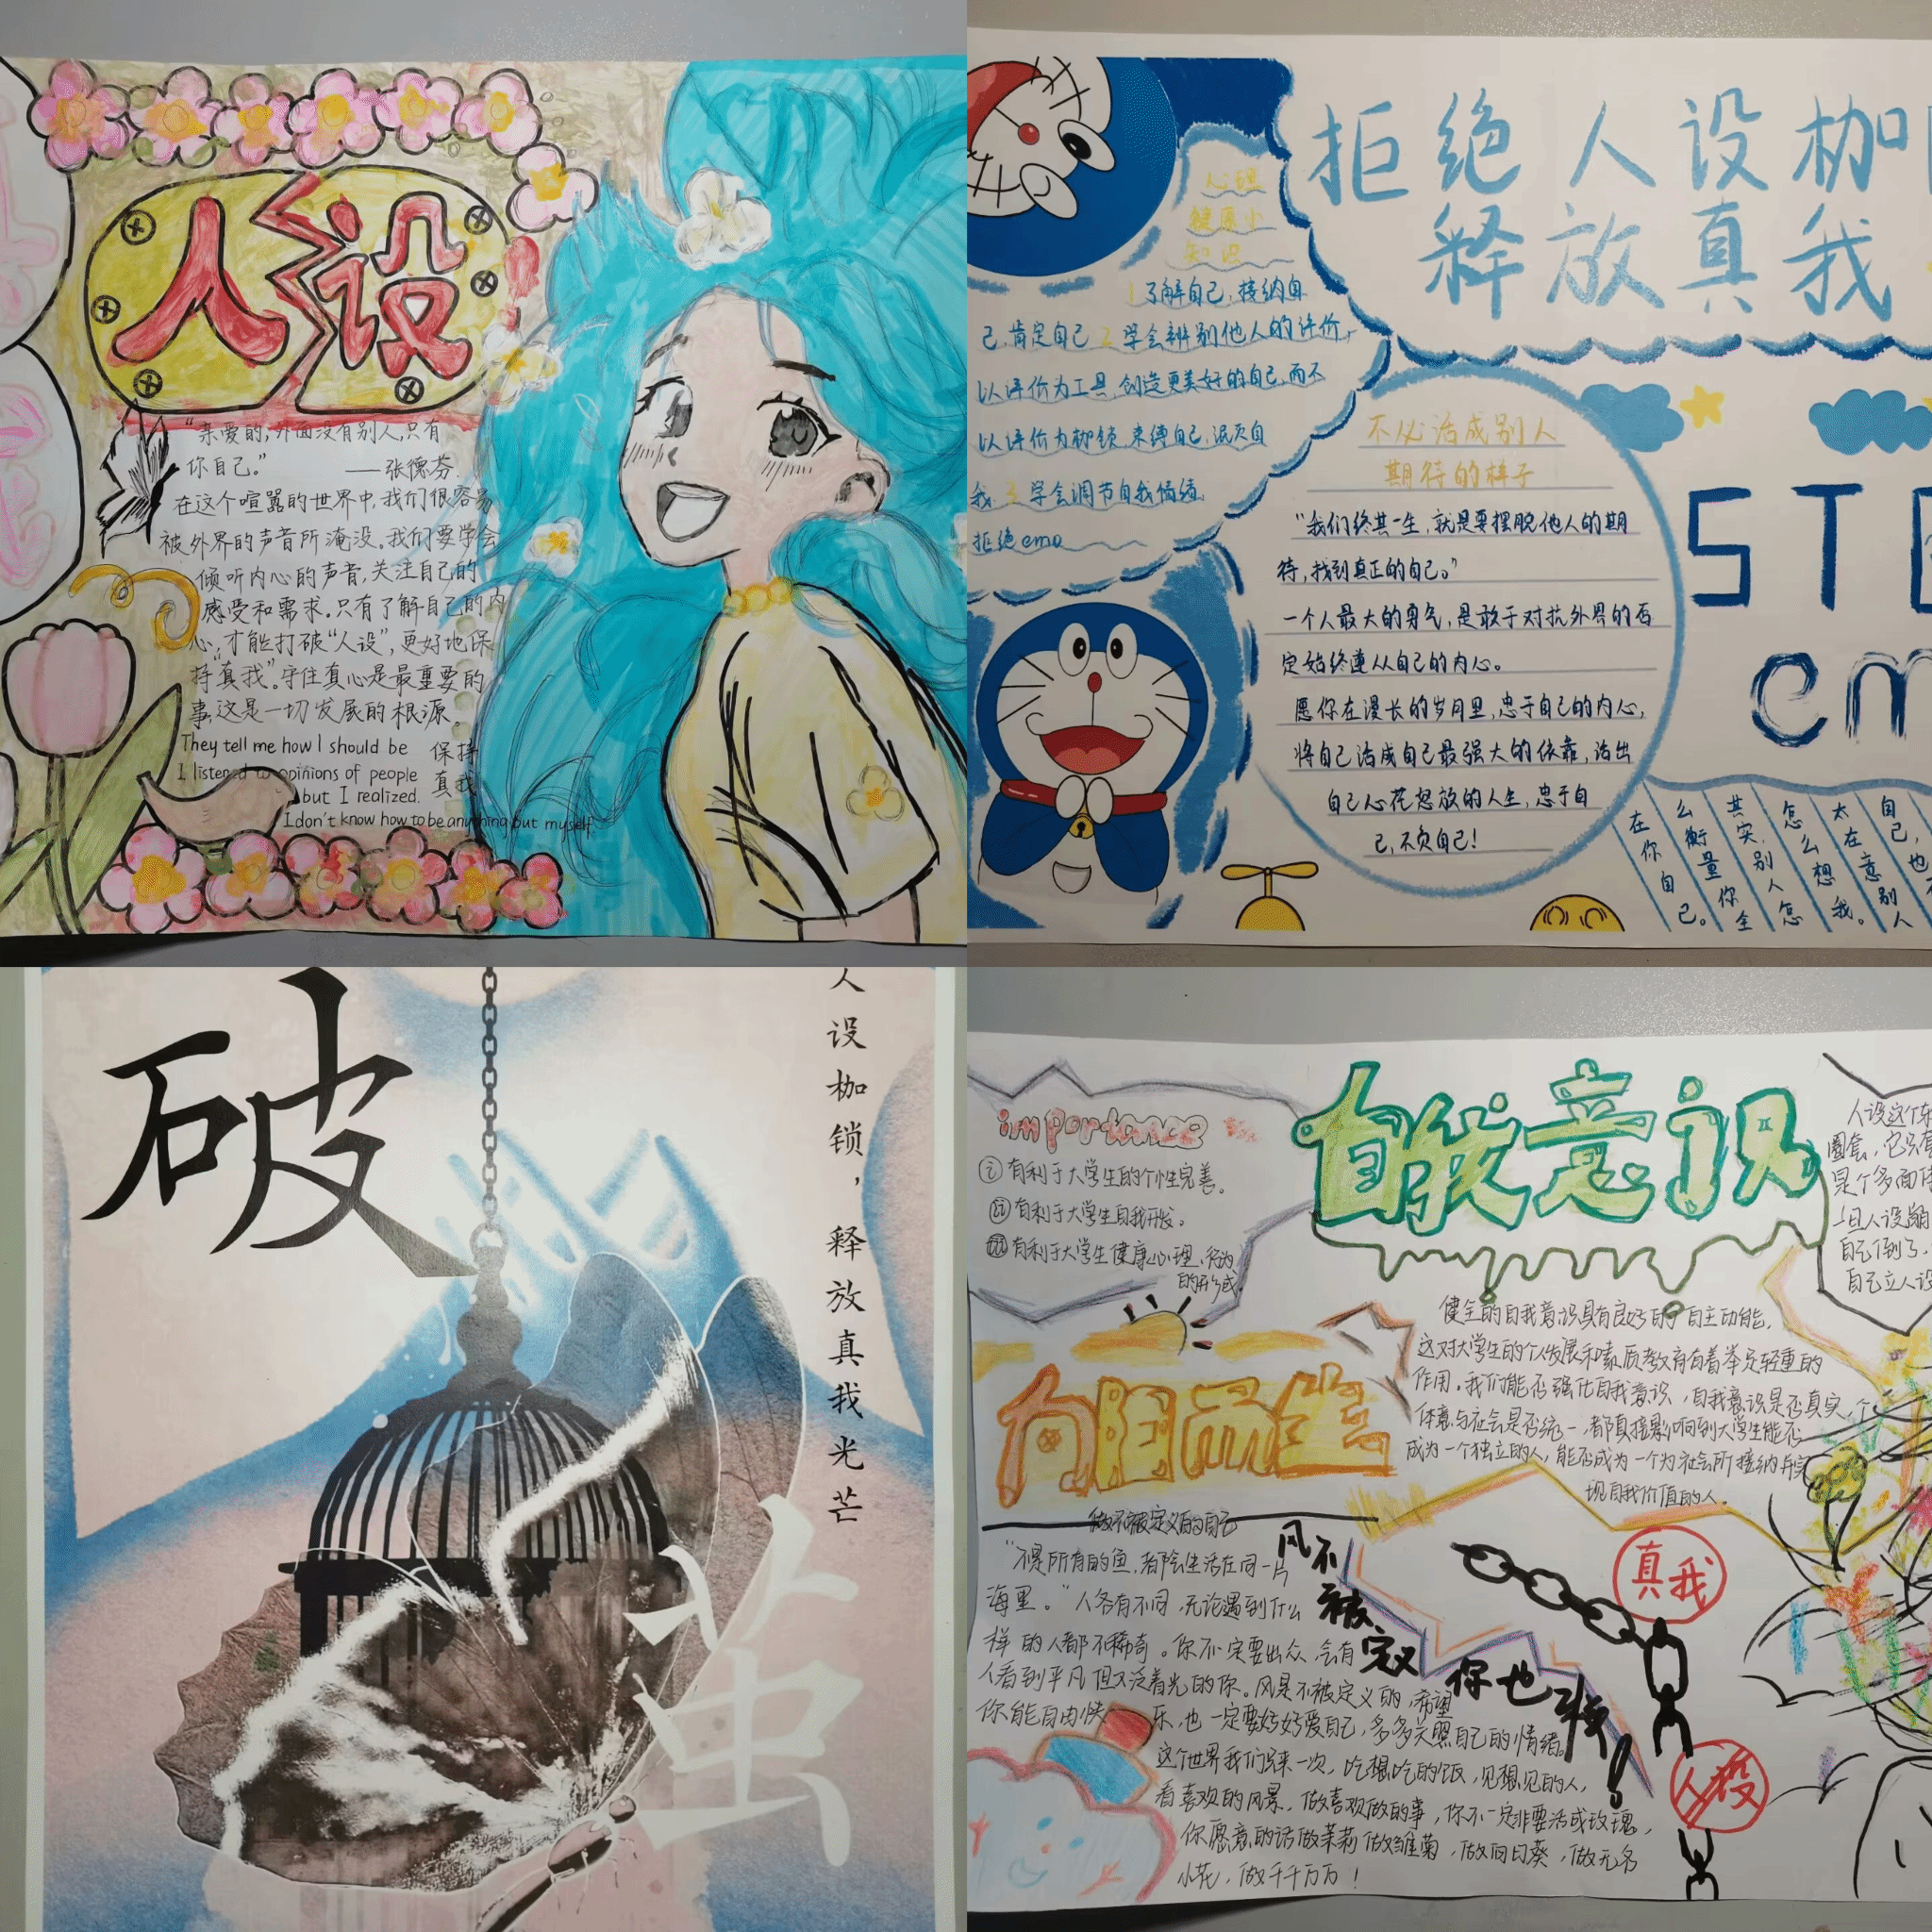 人设
“亲爱的,外面没有别人,只有
你自己。” ——张德芬.
在这个喧嚣的世界中,我们很容易
被外界的声音所淹没。我们要学会
倾听内心的声音,关注自己的
感受和需求。只有了解自己的内
心,才能打破“人设”,更好地保
持“真我”。守住真心是最重要的
事,这是一切发展的根源。
They tell me how I should be
I listened to opinions of people
but I realized.
I don't know how to be anything but myself.
保持
真我
拒绝人设枷
释放真我
心理
健康小
知识
1 了解自己,接纳自
己,肯定自己 2 学会辨别他人的评价,
以评价为工具,创造更美好的自己,而不
以评价为枷锁,束缚自己,泯灭自
我. 3 学会调节自我情绪.
拒绝emo
不必活成别人
期待的样子
“我们终其一生,就是要摆脱他人的期
待,找到真正的自己。”
一个人最大的勇气,是敢于对抗外界的否
定始终遵从自己的内心。
愿你在漫长的岁月里,忠于自己的内心,
将自己活成自己最强大的依靠,活出
自己心花怒放的人生,忠于自
己,不负自己!
ST
em
自己,也
太在意别人
怎么想我。
共实别人怎
么衡量你全
在你自己。
破
茧
人设枷锁,释放真我光芒
importance
ⅰ 有利于大学生的个性完善。
ⅱ 有利于大学生自我开发。
ⅲ 有利于大学生健康心理、行为
的形成.
自我意识
人设这个东
圈套,它只有
是个多面体
一旦人设崩
自己倒了,
自己立人设
健全的自我意识具有良好的自主功能,
这对大学生的个人发展和素质教育有着举足轻重的
作用.我们能否强化自我意识,自我意识是否真实,个
体意与社会是否统一,都直接影响到大学生能否
成为一个独立的人,能否成为一个为社会所接纳并实
现自我价值的人。
向阳而生
做不被定义的自己
“不是所有的鱼,都会生活在同一片
海里。”人各有不同,无论遇到什么
样的人都不稀奇。你不一定要出众,会有
人看到平凡但又泛着光的你。风是不被定义的,希望
你能自由快乐,也一定要好好爱自己,多多关照自己的情绪。
这个世界我们只来一次,吃想吃的饭,见想见的人,
看喜欢的风景,做喜欢做的事,你不一定非要活成玫瑰,
你愿意的话做茉莉做雏菊,做向日葵,做无名
小花,做千千万万!
风不
被
定义
你也是!
真我
人设